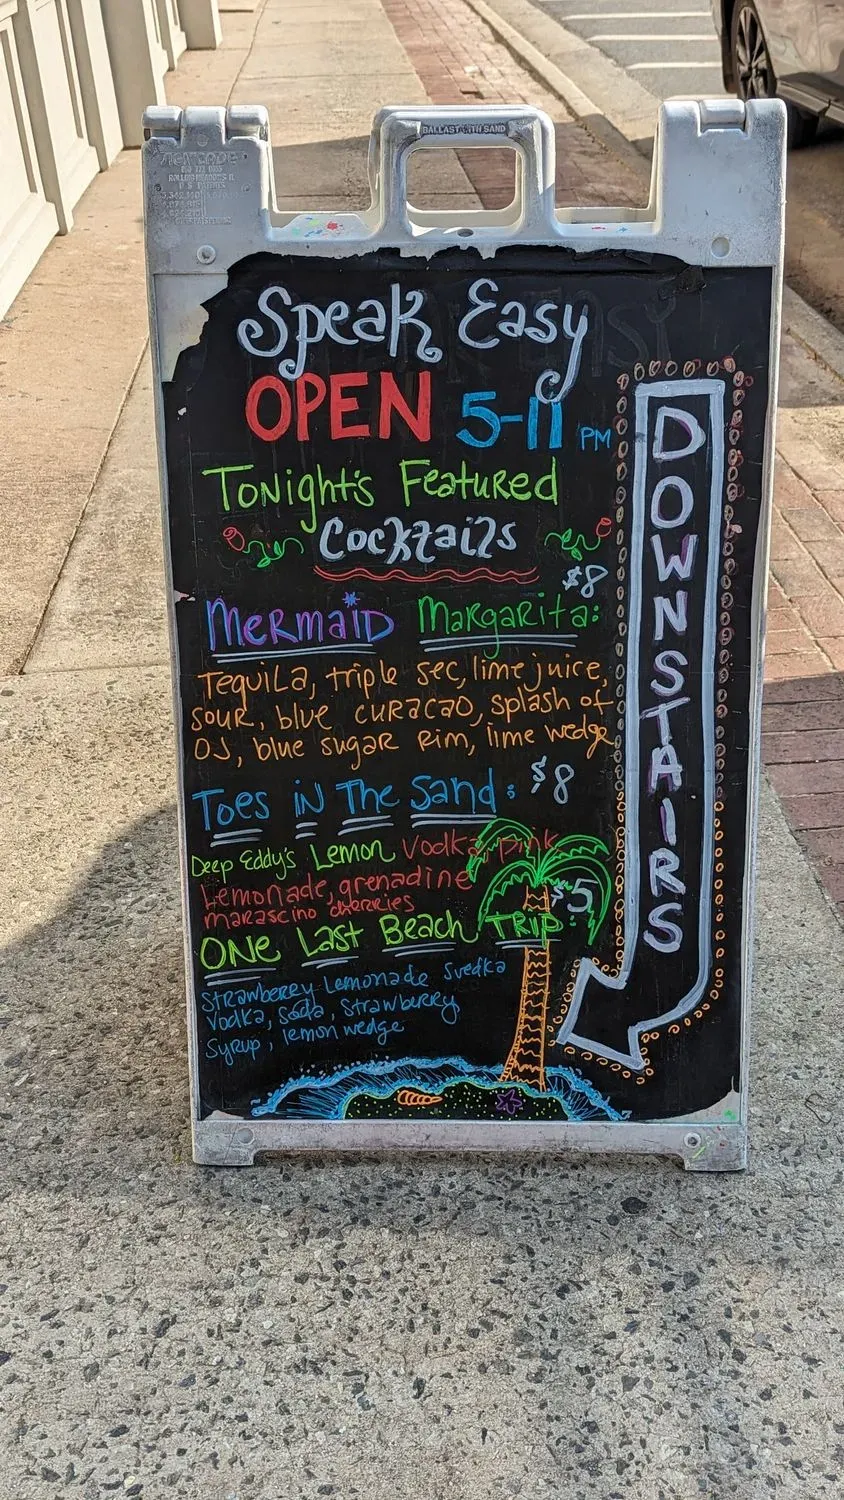 BALLAST WITH SAND
ROLLING MEADOWS IL
U S PATENTS
Speak Easy
OPEN 5-11 PM
Tonight's Featured
Cocktails
$8
Mermaid Margarita:
Tequila, triple sec, lime juice,
sour, blue curacao, splash of
OJ, blue sugar rim, lime wedge
Toes in The Sand: $8
Deep Eddy's Lemon Vodka, pink
Lemonade, grenadine
marascino cherries
$5
One Last Beach Trip:
Strawberry Lemonade Svedka
Vodka, Soda, Strawberry
Syrup, lemon wedge
DOWNSTAIRS